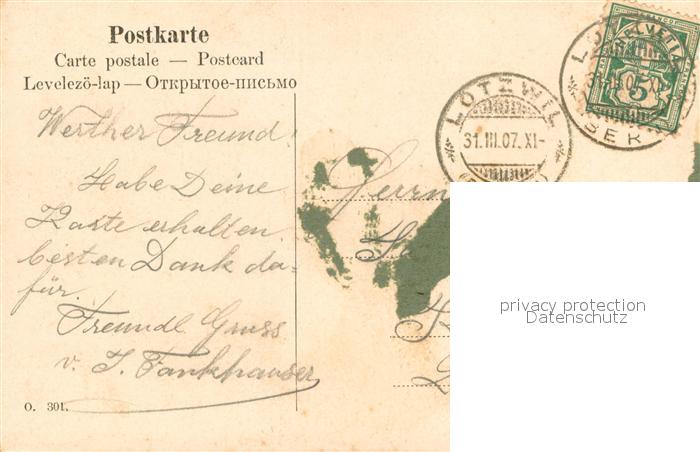 Postkarte
Carte postale — Postcard
Levelező-lap — Открытое-письмо
Werther Freund!
Habe Deine
Karte erhalten
besten Dank da=
für.
Freundl Gruss
v. J. Fankhauser
O. 301.
HELVETIA
5
LOTZWIL
31.III.07.XI-
LO
31.III.07.XI
BER
Herrn
privacy protection
Datenschutz